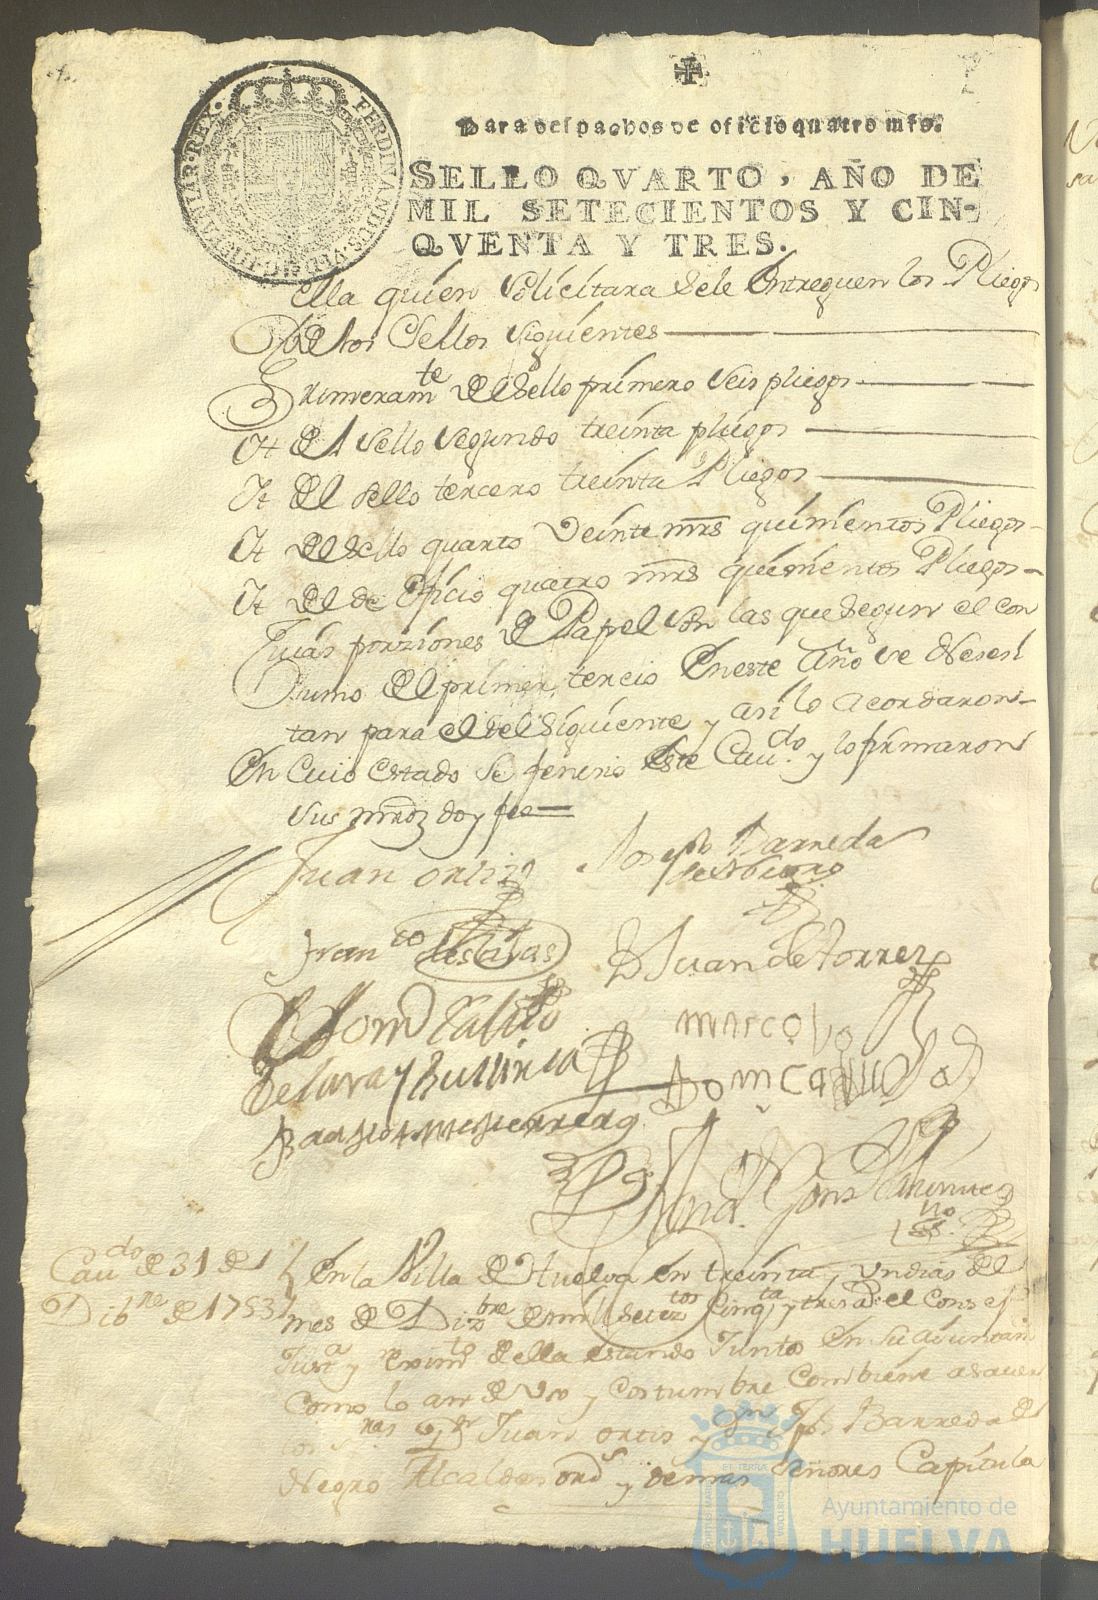 FERDINANDUS·VI·D·G·HISPANIAR·REX·
Para despachos de oficio quatro mrs.
SELLO QVARTO, AÑO DE
MIL SETECIENTOS Y CIN-
QVENTA Y TRES.
ella quien solicitara sele entreguen los Pliegos
De los Sellos siguientes
Primeramte del sello primero seis pliegos
Yt del sello segundo treinta pliegos
Yt del sello tercero treinta Pliegos
Yt del sello quarto veinte mrs quinientos Pliegos
Yt del de oficio quatro mrs quinientos Pliegos
Cuias porziones de Papel son las que segun el con
sumo del primer tercio en este año se nesesi
tan para el del siguiente y asi lo acordaron
En cuio estado se fenecio este Cavdo. y lo firmaron
sus mrdz doy fee
Juan ortiz
Joseph Barreda
Franco de salas
D Juan de torrez
de lara y Bullinca
marcos
Domc
Cavdo de 31 de
Dibre de 1753
En la Villa de Huelva en treinta y un dias del
mes de Dizbre de mill setezos cinqta y tres as el Consejo
Justa y reximto de ella estando Junto en su aiuntam
como lo an de uso y costumbre combiene a saver
los Sres Dn Juan ortis y Dn Jph Barreda de
Negro Alcaldes ords y demas señores Capitula
Ayuntamiento de
HUELVA